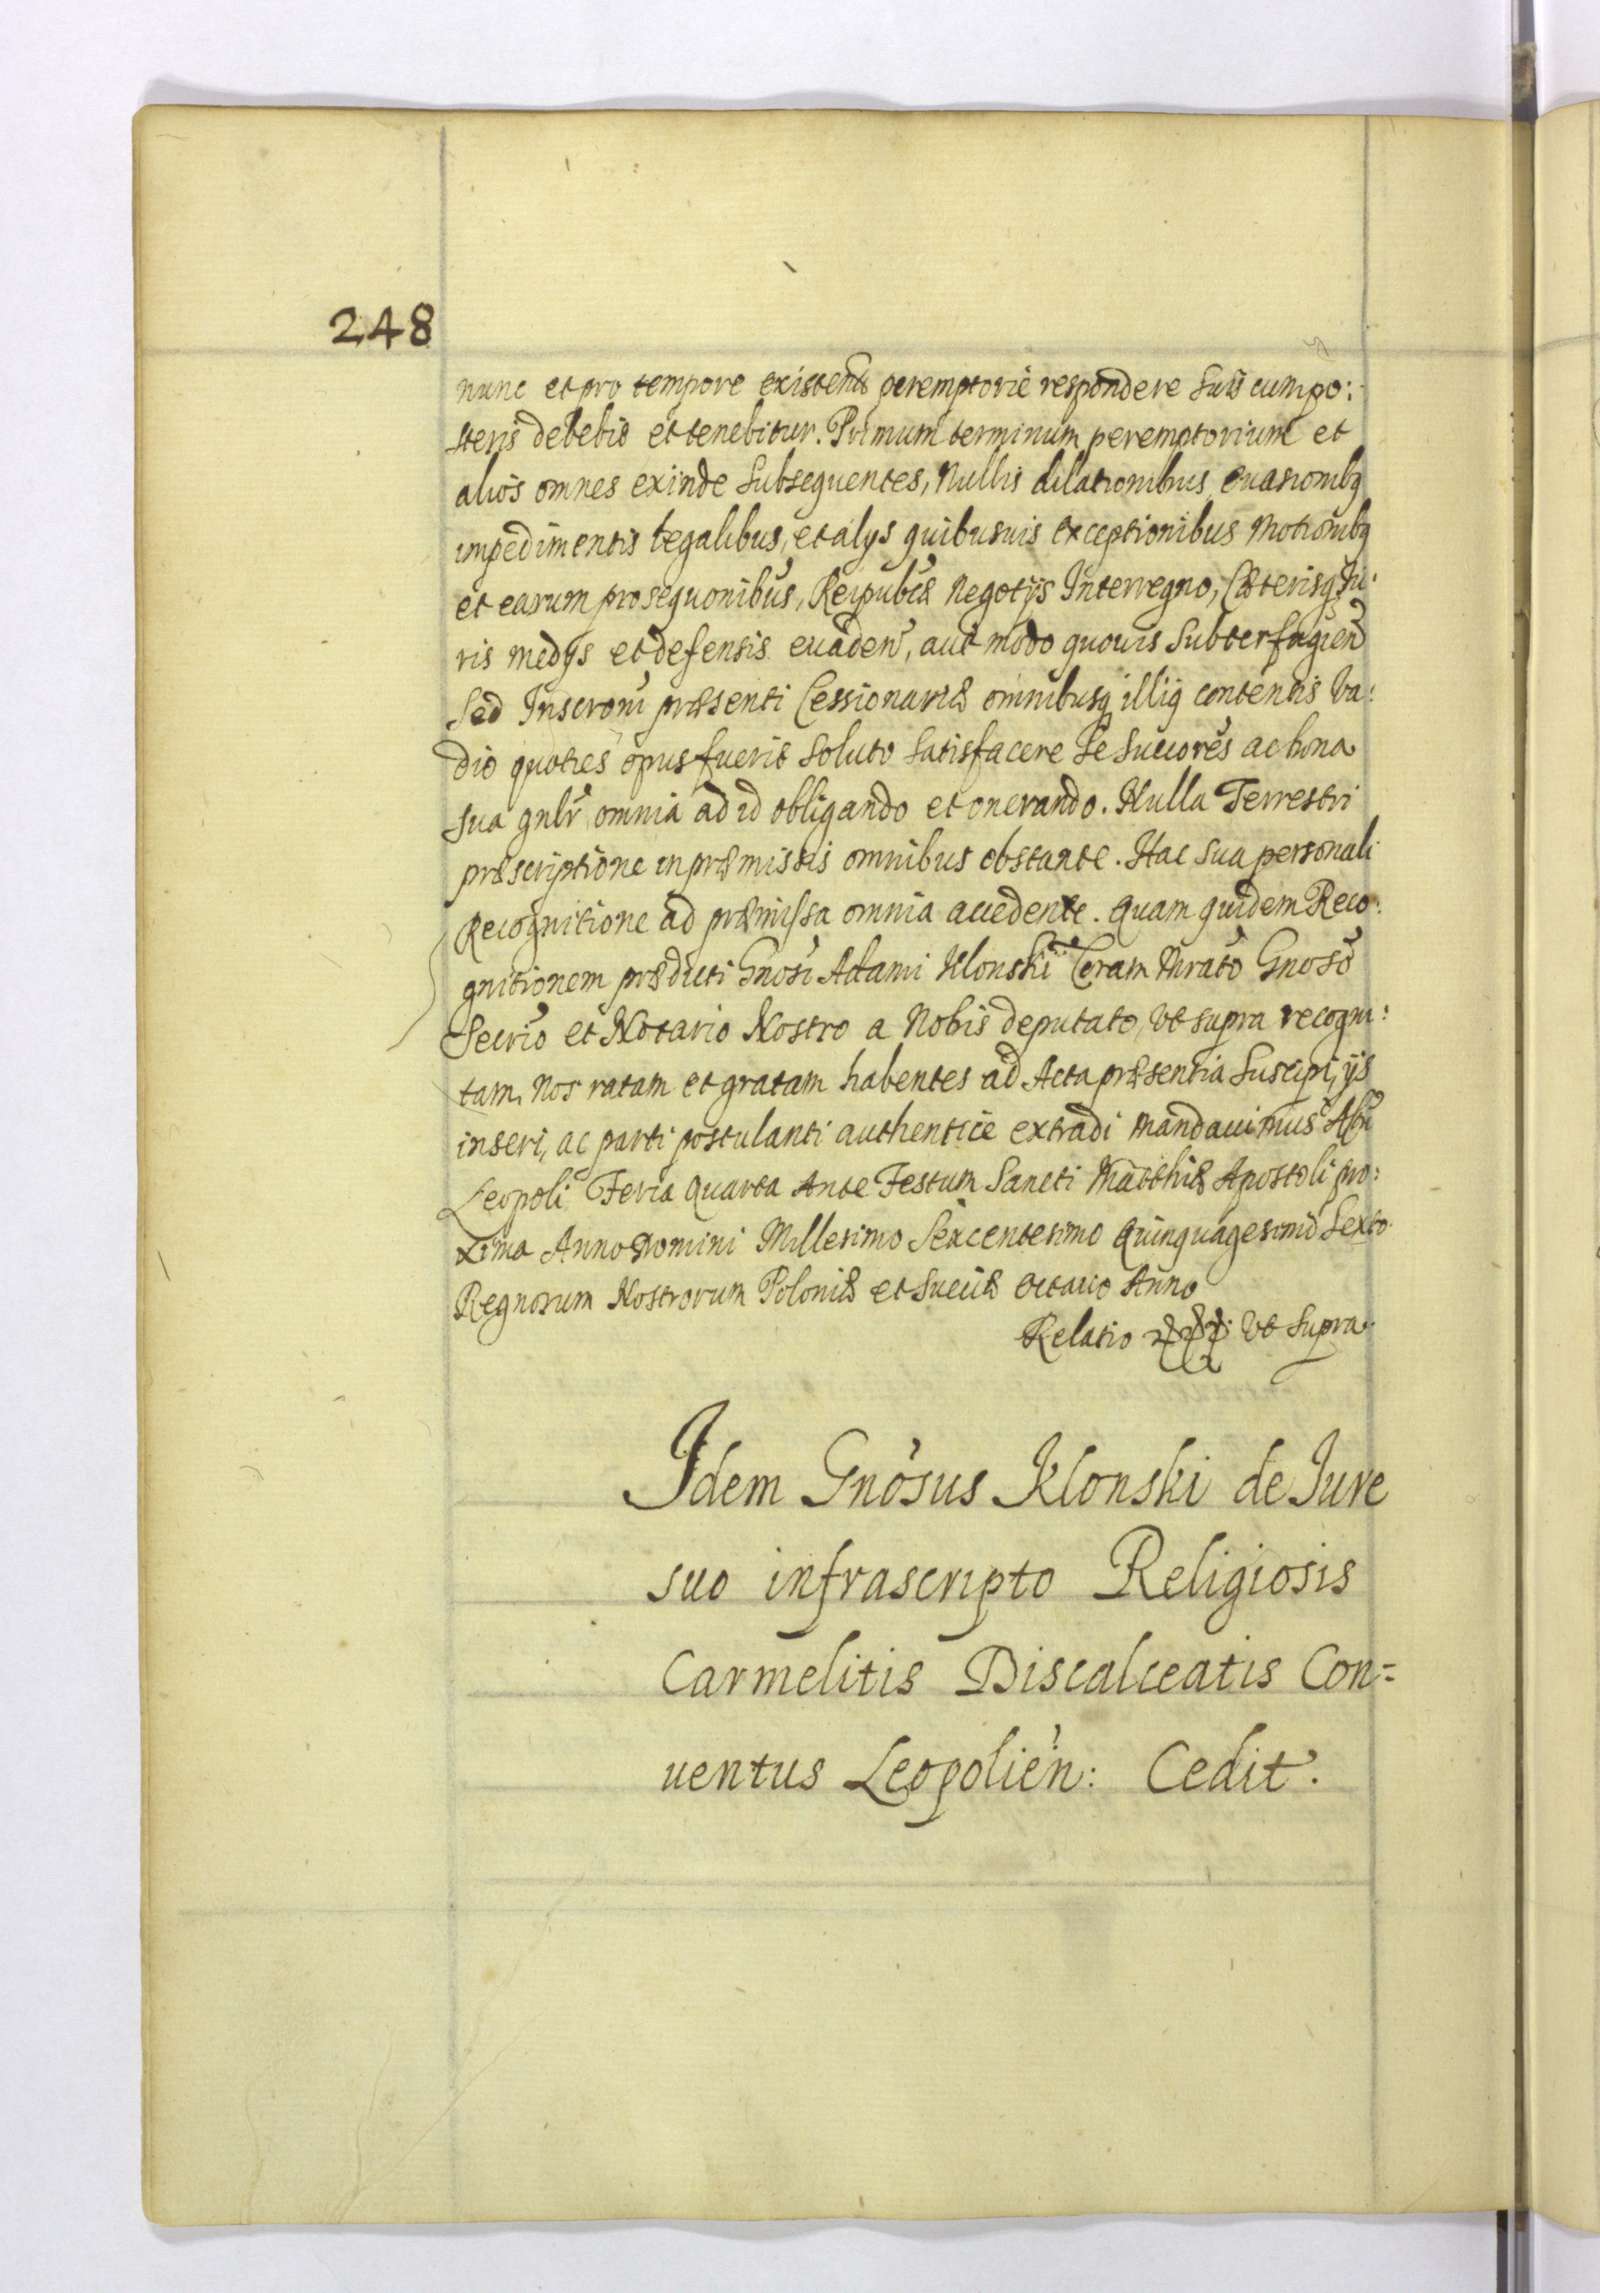 248
nunc et pro tempore existens peremptorie respondere suis cum po:
steris debebit et tenebitur. Primum terminum peremptorium et
alios omnes exinde subsequentes, Nullis dilationibus evasionibq
impedimentis legalibus, et alys quibusuis exceptionibus Motionibq
et earum prosequonibus, Reipublæ Negotijs Interregno, Cæterisq Ju:
ris medijs et defensis euaden, aut modo quouis subterfugien
Sed Inscroni præsenti Cessionariæ omnibusq illiq contentis Va:
dio quoties opus fuerit soluto satisfacere se succores ac bona
sua gnlr omnia ad id obligando et onerando. Nulla Terrestri
præscriptione in præmissis omnibus obstante. Hac sua personali
Recognitione ad præmissa omnia accedente. Quam quidem Reco:
gnitionem prædicti Gnosi Adami Klonski Coram Mrato Gnoso
Secrio et Notario Nostro a Nobis deputato, Vt supra recogni:
tam, Nos ratam et gratam habentes ad Acta præsentia suscipi, ijs
inseri, ac parti postulanti authentice extradi Mandauimus Actu
Leopoli Feria Quarta Ante Festum Sancti Matthiæ Apostoli pro:
xima Anno Domini Millesimo Sexcentesimo Quinquagesimo Sexto
Regnorum Nostrorum Poloniæ et Sueciæ Octauo Anno
Relatio Vt supra
Idem Gnosus Klonski de Jure
suo infrascripto Religiosis
Carmelitis Discalceatis Con=
uentus Leopolien: Cedit.